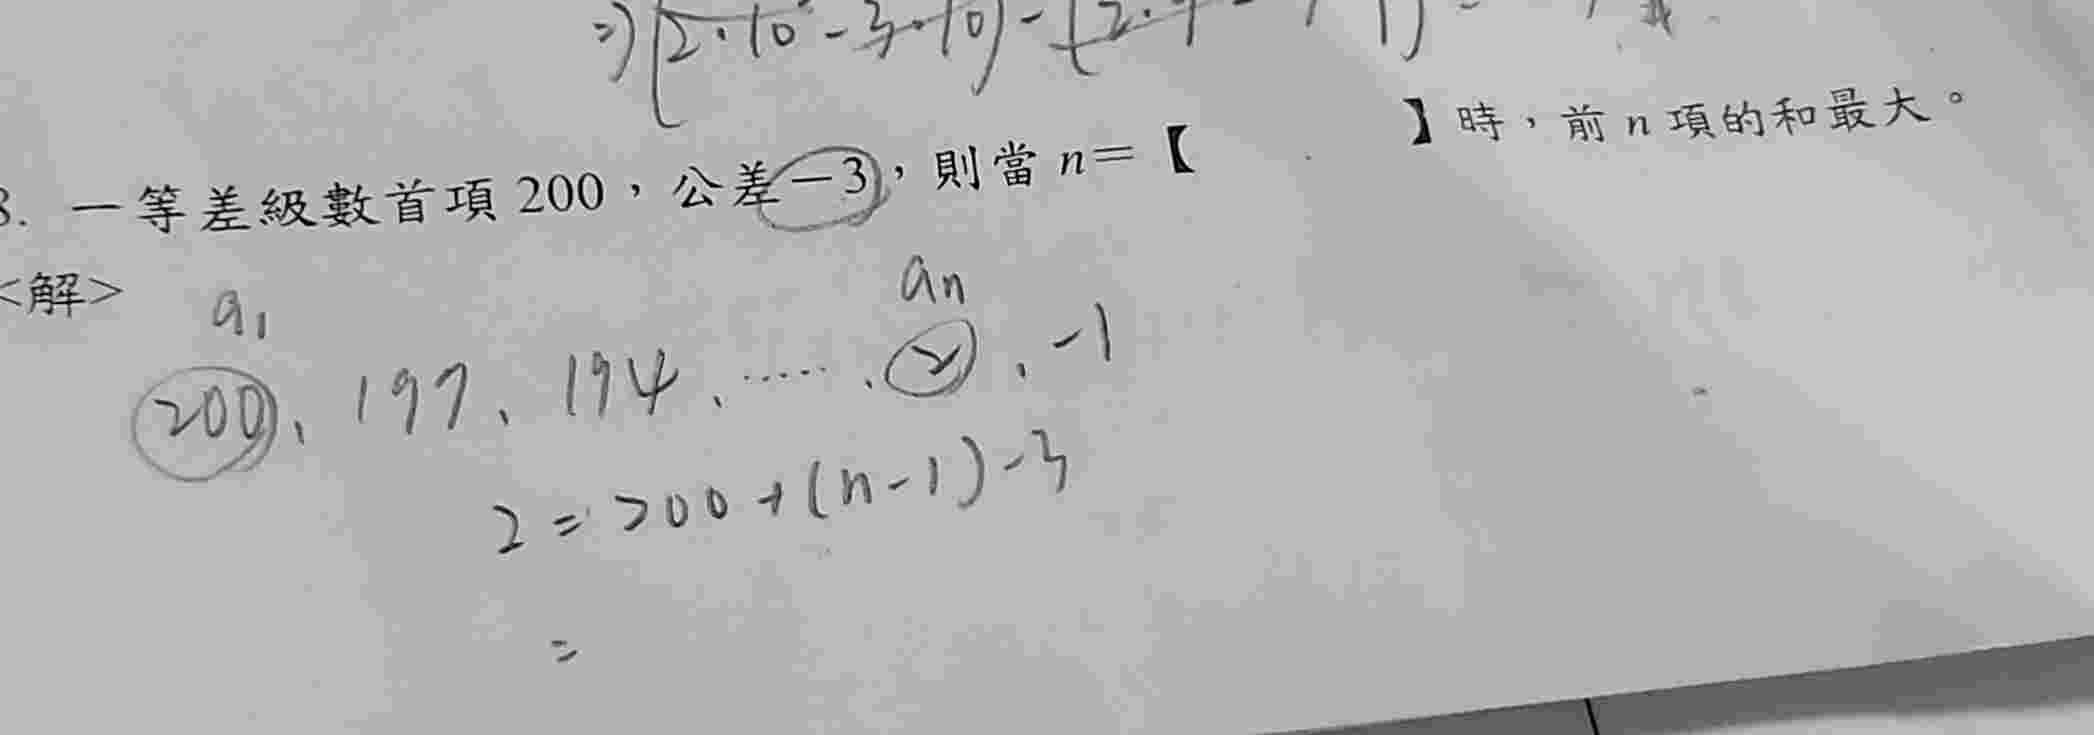 ⇒(2·10²-3·10)-(2·9
3. 一等差級數首項 200,公差−3,則當 n=【 】時,前 n 項的和最大。
<解>
a₁ aₙ
200、197、194、……、2、-1
2=200+(n-1)-3
=